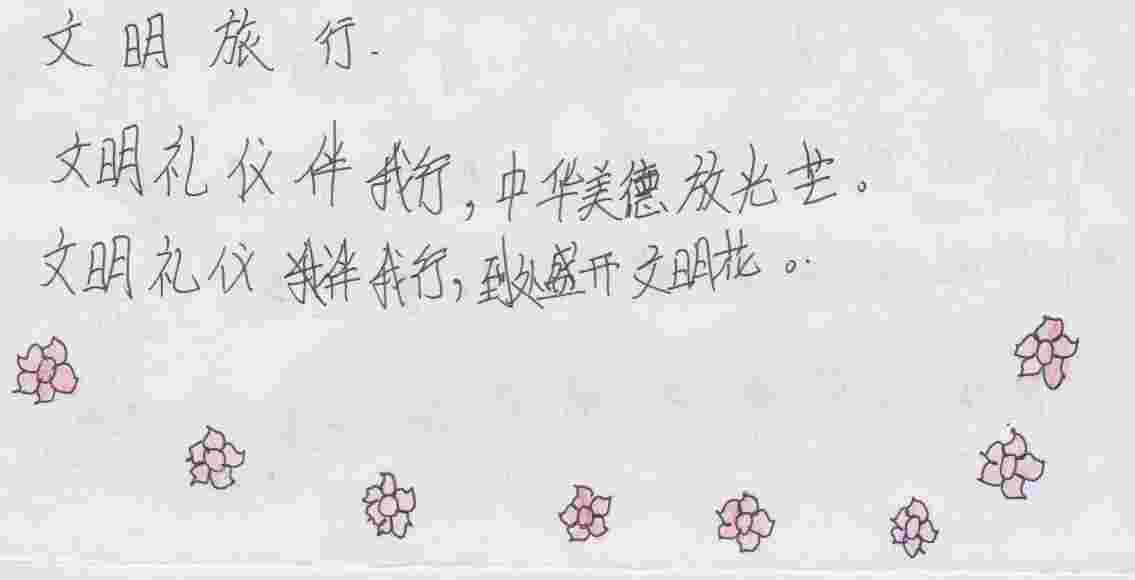 文明旅行.
文明礼仪伴我行,中华美德放光芒。
文明礼仪伴我行,到处盛开文明花。